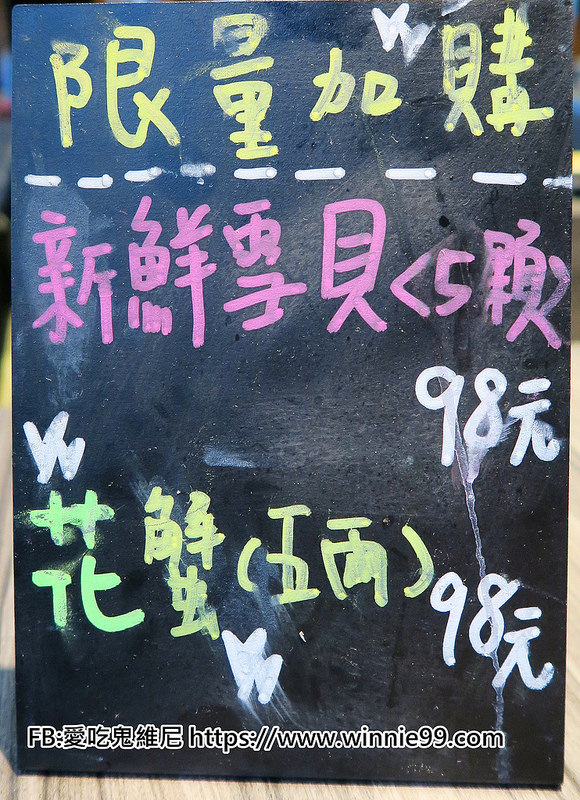 限量加購
新鮮孕貝<5顆>
98元
花蟹(五兩)
98元
FB:愛吃鬼維尼 https://www.winnie99.com